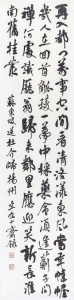 再入都門萬事空閒看清洛漾東風當年帷幄
幾人在回首觚棱一夢中采藥會須逢薊子問
禪何處識龐翁歸來鄰里應迎笑新長淮
南舊桂叢 蘇東坡送杜介歸揚州